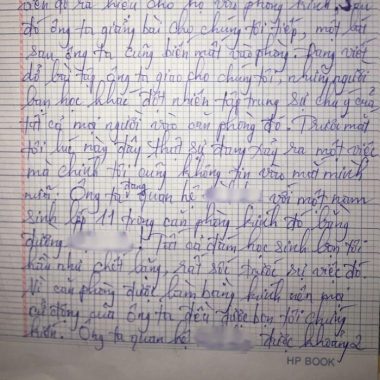 đến để ra hiệu cho họ vào phòng kính. Sau
đó ông ta giảng bài cho chúng tôi tiếp, một lát
sau ông ta cũng biến mất vào phòng. Đang viết
dở bài tập, ông ta giao cho chúng tôi, những người
bạn học khác đột nhiên tập trung sự chú ý của
tất cả mọi người vào căn phòng đó. Trước mắt
tôi lúc này đây thật sự đang xảy ra một việc
mà chính tôi cũng không tin vào mắt mình
nữa. Ông ta đang quan hệ với một nam
sinh lớp 11 trong căn phòng kính đó bằng
đường Tất cả đám học sinh bọn tôi
hầu như chết lặng, rất sốc trước sự việc đó.
Vì căn phòng được làm bằng kính nên mọi
cử động của ông ta đều được bọn tôi chứng
kiến. Ông ta quan hệ được khoảng 2
HP BOOK